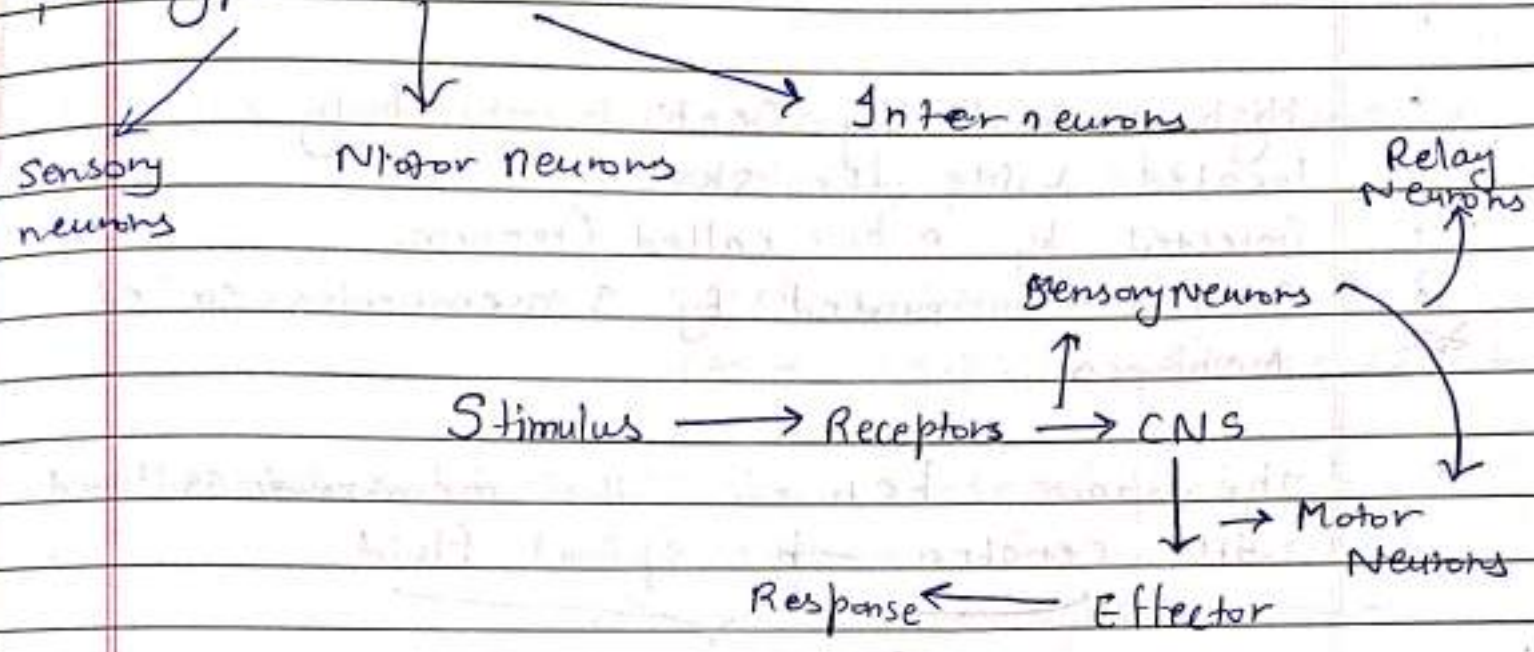 Inter neurons
Sensory
neurons
Motor neurons
Relay
Neurons
Sensory Neurons
Stimulus → Receptors → CNS
→ Motor
Neurons
Response ← Effector